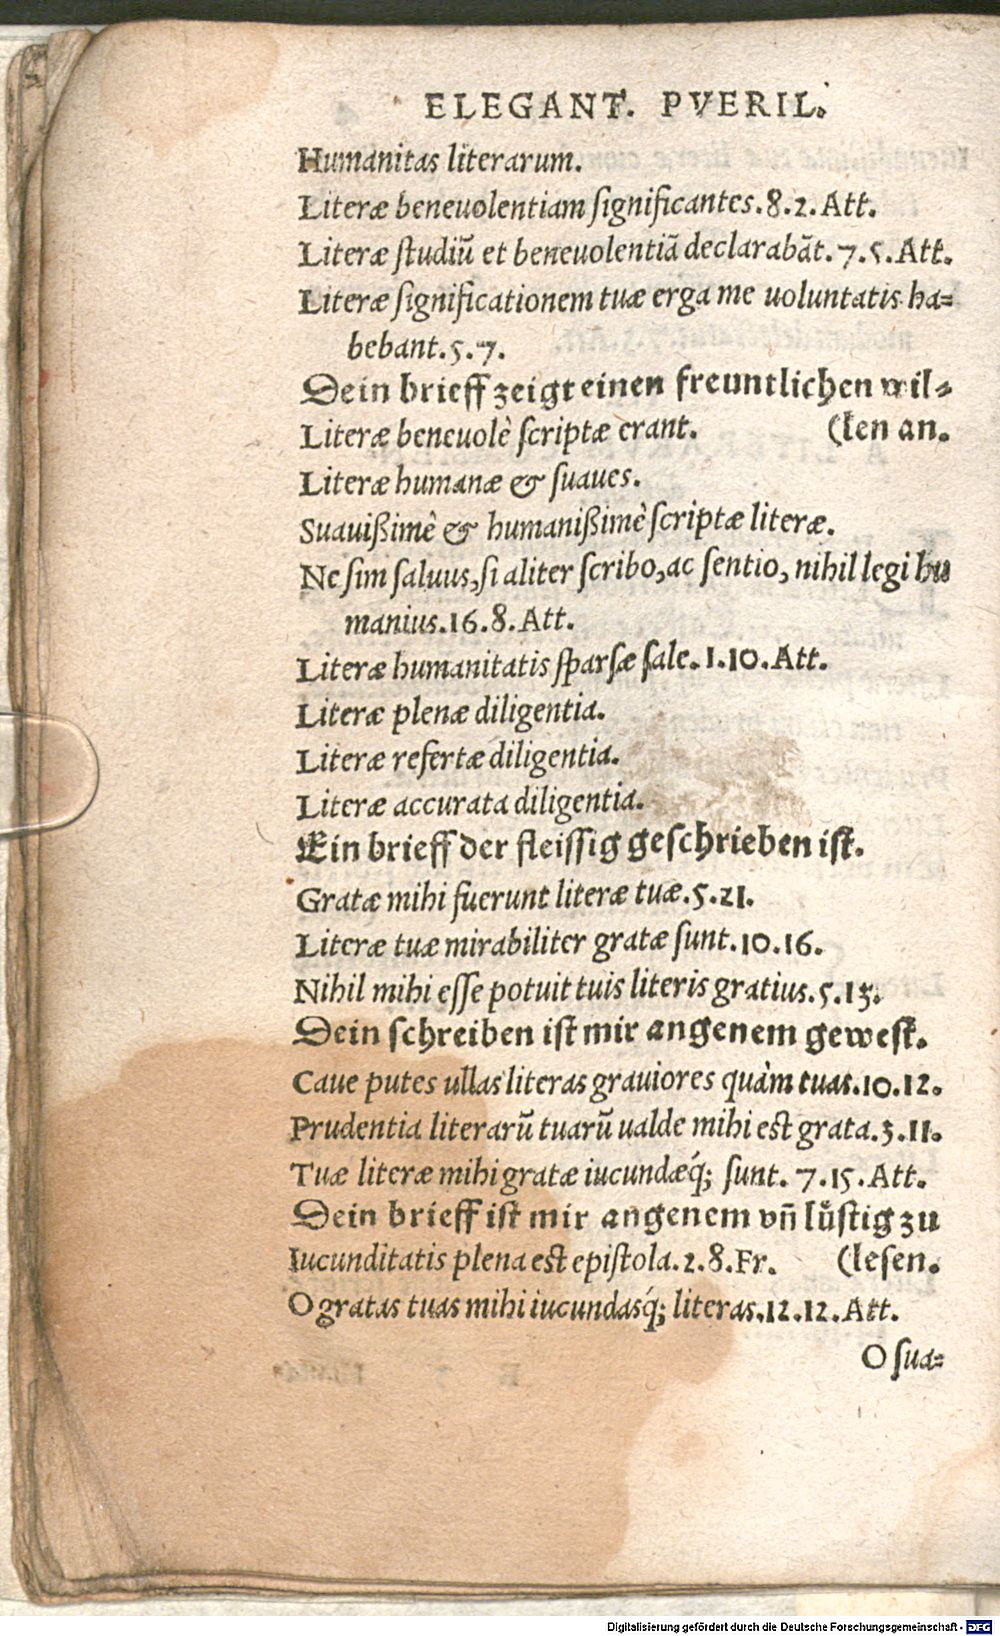 ELEGANT. PVERIL.
Humanitas literarum.
Literæ beneuolentiam ſignificantes. 8. 2. Att.
Literæ ſtudiũ et beneuolentiã declarabãt. 7. 5. Att.
Literæ ſignificationem tuæ erga me uoluntatis ha=
bebant. 5. 7.
Dein brieff zeigt einen freuntlichen wil=
Literæ beneuolè ſcriptæ erant. (len an.
Literæ humanæ & ſuaues.
Suauißimè & humanißimè ſcriptæ literæ.
Ne ſim ſaluus, ſi aliter ſcribo, ac ſentio, nihil legi hu
manius. 16. 8. Att.
Literæ humanitatis ſparſæ ſale. 1. 10. Att.
Literæ plenæ diligentia.
Literæ refertæ diligentia.
Literæ accurata diligentia.
Ein brieff der fleiſſig geſchrieben iſt.
Gratæ mihi fuerunt literæ tuæ. 5. 21.
Literæ tuæ mirabiliter gratæ ſunt. 10. 16.
Nihil mihi eſſe potuit tuis literis gratius. 5. 13.
Dein ſchreiben iſt mir angenem geweſt.
Caue putes ullas literas grauiores quàm tuas. 10. 12.
Prudentia literarũ tuarũ ualde mihi est grata. 3. 11.
Tuæ literæ mihi gratæ iucundæq́; ſunt. 7. 15. Att.
Dein brieff iſt mir angenem vñ luͤſtig zu
Iucunditatis plena est epiſtola. 2. 8. Fr. (leſen.
O gratas tuas mihi iucundasq́; literas. 12. 12. Att.
O ſua=
Digitalisierung gefördert durch die Deutsche Forschungsgemeinschaft - DFG